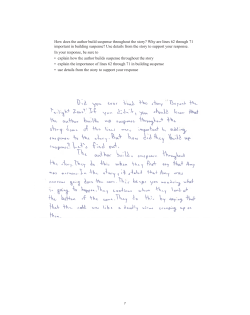 How does the author build suspense throughout the story? Why are lines 62 through 71
important in building suspense? Use details from the story to support your response.
In your response, be sure to
• explain how the author builds suspense throughout the story
• explain the importance of lines 62 through 71 in building suspense
• use details from the story to support your response
Did you ever read the story
If you didn't, you should know that
the author builds up suspense throughout the
story. Some of the lines were important to adding
suspense to the story. But how did they build up
suspense? Let's find out.
The author builds suspense throughout
the story. They do this when they say that Amy
was nervous. In the story, it stated that Amy was
nervous going down the cave. This keeps you wondering what
is going to happen. They continue when they look at
the bottom of the cave. They do this by saying that
that the cold was like a deadly vine creeping up on
them.